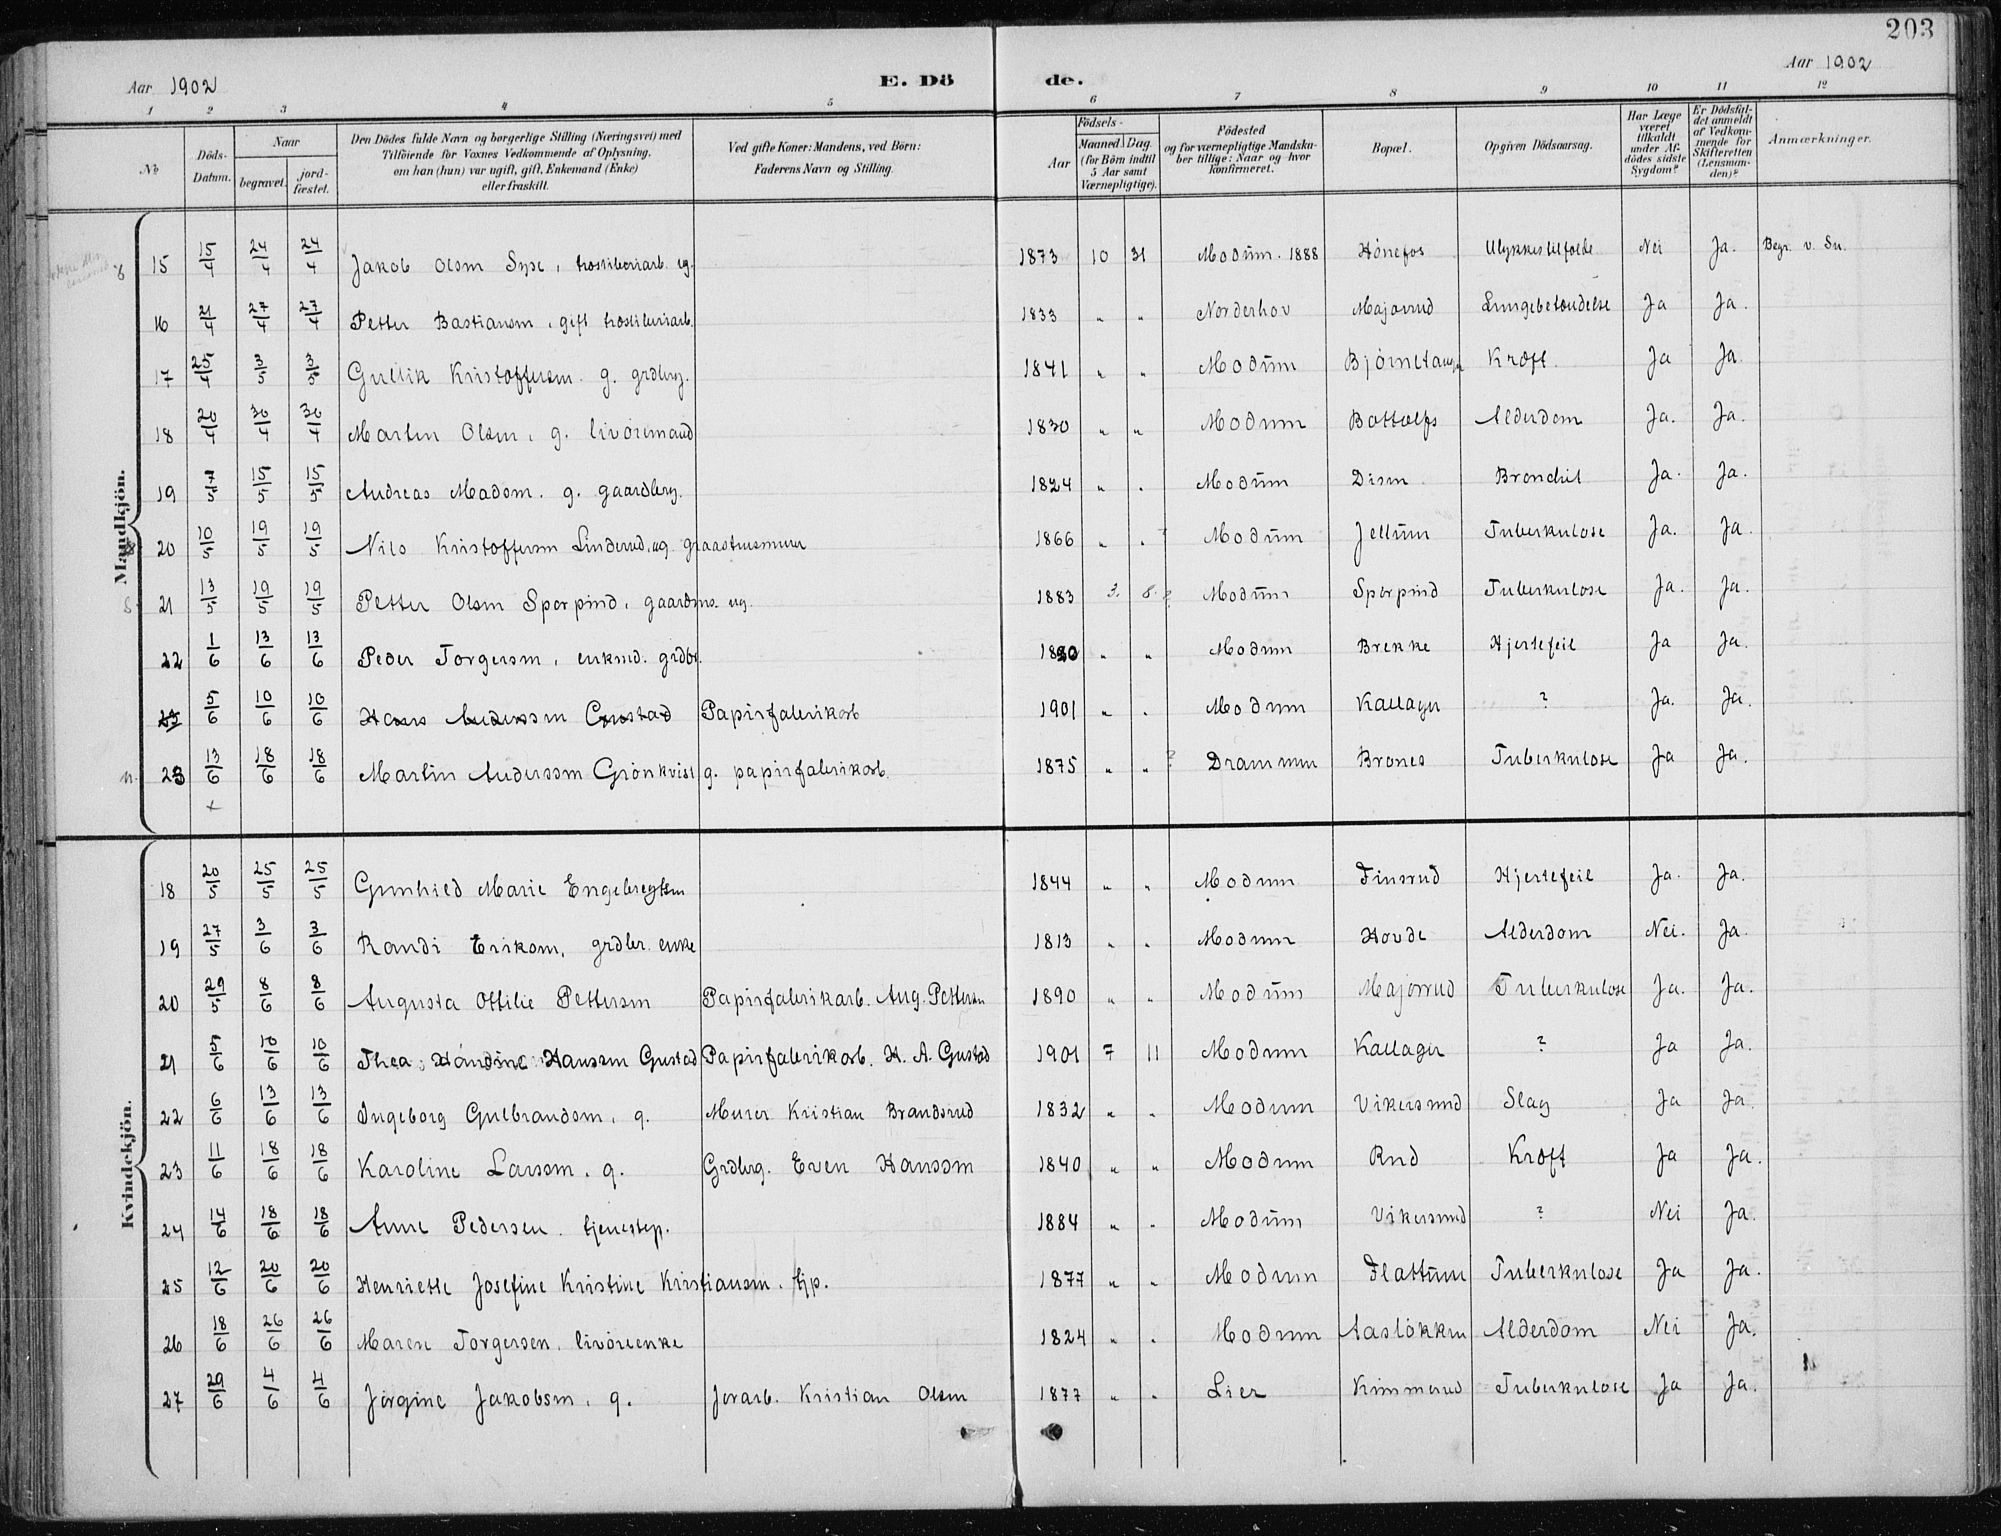 203
Aar 1902
E. Dö
de.
Aar 1902
1 2 3 4 5 6 7 8 9 10 11 12
No
Döds-Datum.
Naar
begravet.
jord-fæstet.
Den Dödes fulde Navn og borgerlige Stilling (Næringsvei) med
Tilföiende for Voxnes Vedkommende af Oplysning,
om han (hun) var ugift, gift, Enkemand (Enke)
eller fraskilt.
Ved gifte Koner: Mandens, ved Börn:
Faderens Navn og Stilling.
Födsels-
Aar
Maaned. Dag.
(for Börn indtil
5 Aar samt
Værnepligtige).
Födested
og for værnepligtige Mandska-
ber tillige: Naar og hvor
konfirmeret.
Bopæl.
Opgiven Dödsaarsag.
Har Læge
været
tilkaldt
under Af-
dödes sidste
Sygdom?
Er Dödsfal-
det anmeldt
af Vedkom-
mende for
Skifteretten
(Lensman-
den)?
Anmærkninger.
Mandkjön.
15 15/4 24/4 24/4 Jakob Olsen Syse, træsliberiarb. ug. 1873 10 31 Modum. 1888 Hönefos Ulykkestilfælde Nei Ja. Begr. v. Sn.
16 21/4 27/4 27/4 Petter Bastiansen, gift træsliberiarb. 1833 " " Norderhov Majorud Lungebetændelse Ja Ja.
17 25/4 3/5 3/5 Gullik Kristoffersen. g. grdbrg. 1841 " " Modum Kræft. Ja Ja
18 20/4 30/4 30/4 Martin Olsen, g. livöremand 1830 " " Modum Bottolfs Alderdom Ja. Ja.
19 7/5 15/5 15/5 Andreas Madsen. g. gaardbrg. 1824 " " Modum Disen Bronchit Ja. Ja.
20 10/5 19/5 19/5 Nils Kristoffersen Linderud, ug. graastensmurer 1866 " " ? Modum Jellum Tuberkulose Ja. Ja.
21 13/5 19/5 19/5 Petter Olsen Sporpind, gaardms. ug. 1883 3. 8. ? Modum Sporpind Tuberkulose Ja. Ja.
22 1/6 13/6 13/6 Peder Torgersen, enkmd. grdbr. Modum Brekke Hjertefeil Ja Ja.
5/6 10/6 10/6 Hans Anderssen Gustad Papirfabrikarb 1901 " " Modum Kallager ? Ja. Ja.
n. 23 13/6 18/6 18/6 Martin Anderssen Grönkvist g. papirfabrikarb. 1875 " " ? Drammen Brones Tuberkulose Ja Ja.
+
Kvindekjön.
18 20/5 25/5 25/5 Gunhild Marie Engebregtsen 1844 " " Modum Finsrud Hjertefeil Ja. Ja.
19 27/5 3/6 3/6 Randi Eriksen, grdbr. enke 1813 " " Modum Hovde Alderdom Nei. Ja.
20 29/5 8/6 8/6 Augusta Ottilie Pettersen Papirfabrikarb. Aug. Pettersen 1890 " " Modum Majorrud Tuberkulose Ja. Ja.
21 5/6 10/6 10/6 Thea Handine Hanssen Gustad Papirfabrikarb. H. A. Gustad 1901 7 11 Modum Kallager ? Ja Ja.
22 6/6 13/6 13/6 Ingeborg Gulbrandsen, g. Murer Kristian Brandsrud 1832 " " Modum Vikersund Slag Ja Ja
23 11/6 18/6 18/6 Karoline Larssen, g. Grdbrg. Even Hanssen 1840 " " Modum Rud Kræft Ja Ja.
24 14/6 18/6 18/6 Anne Pedersen. tjenestep. 1884 " " Modum Vikersund ? Nei Ja.
25 12/6 20/6 20/6 Henriette Josefine Kristine Kristiansen. tjp. 1877 " " Modum Flattum Tuberkulose Ja Ja.
26 18/6 26/6 26/6 Maren Torgersen, livöreenke 1824 " " Modum Aaslökken Alderdom Nei Ja.
27 29/6 4/6 4/6 Jörgine Jakobsen, g. Jerarb. Kristian Olsen 1877 " " Lier Kimmerud Tuberkulose Ja Ja.